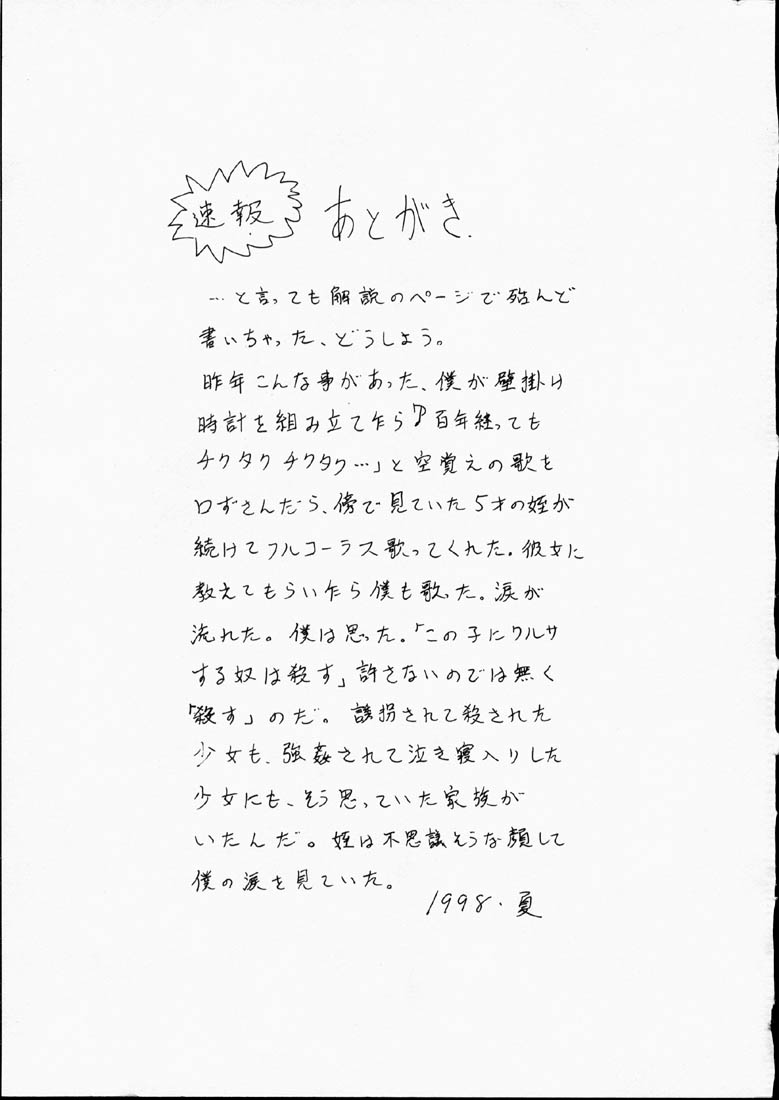 速報 あとがき.
…と言っても解説のページで殆んど
書いちゃった、どうしよう。
昨年こんな事があった、僕が壁掛け
時計を組み立て乍ら♪百年経っても
チクタクチクタク…」と空覚えの歌を
口ずさんだら、傍で見ていた5才の姪が
続けてフルコーラス歌ってくれた。彼女に
教えてもらい乍ら僕も歌った。涙が
流れた。僕は思った。「この子にワルサ
する奴は殺す」許さないのでは無く
「殺す」のだ。誘拐されて殺された
少女も、強姦されて泣き寝入りした
少女にも、そう思っていた家族が
いたんだ。姪は不思議そうな顔して
僕の涙を見ていた。
1998.夏